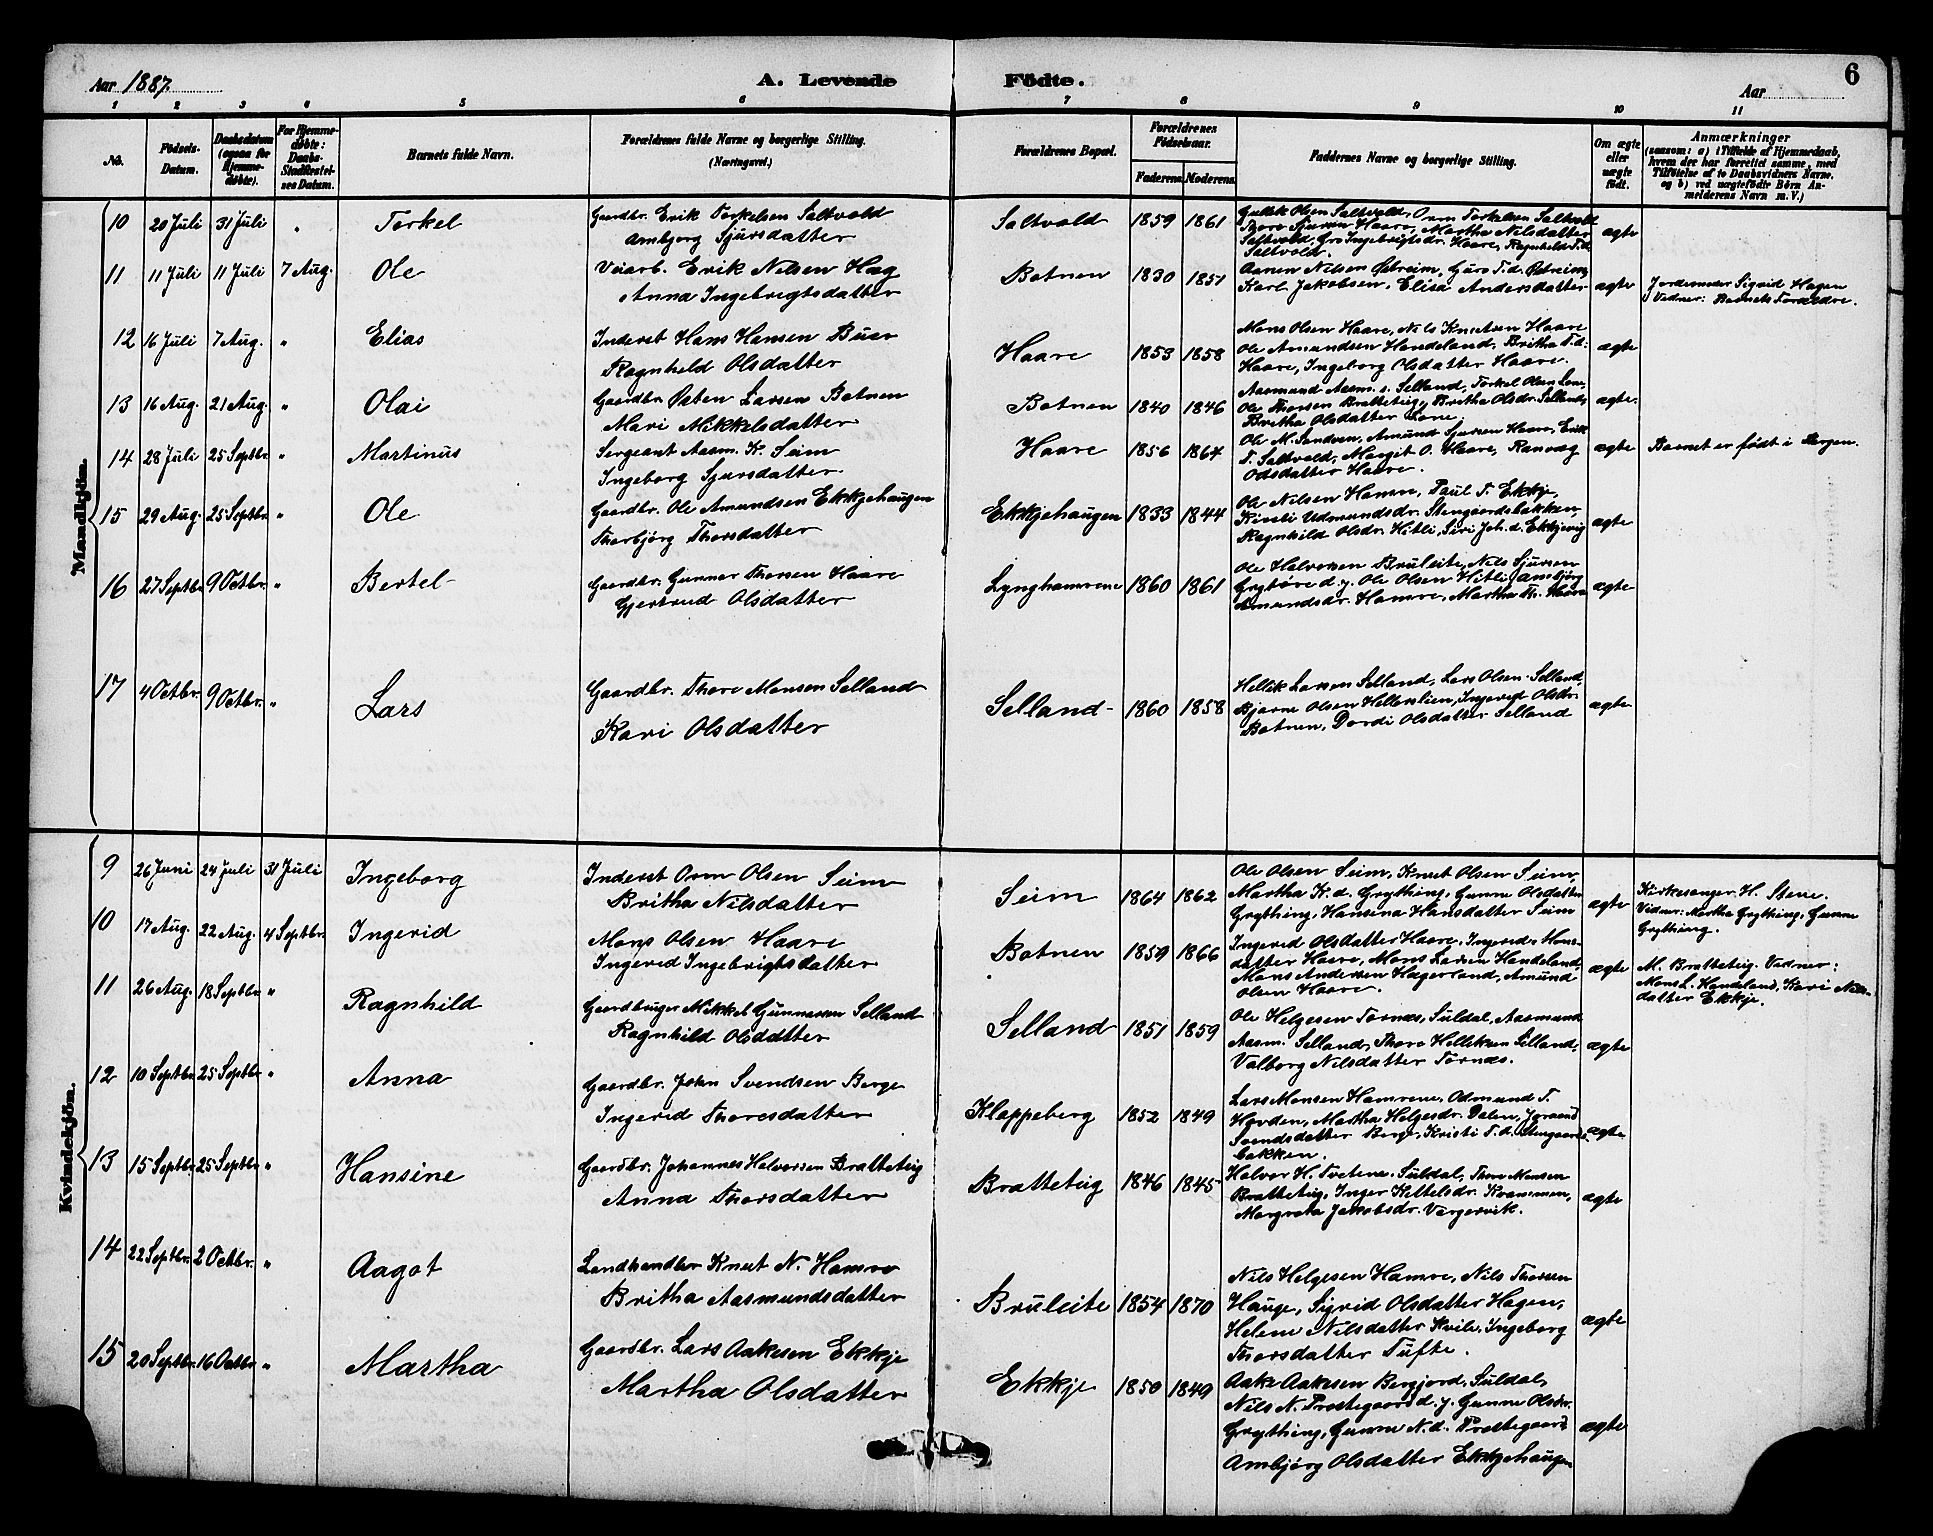 Aar 1887.
A. Levende Födte.
Aar
6
1 2 3 4 5 6 7 8 9 10 11
No.
Födsels-Datum.
Daabsdatum (ogsaa for Hjemme-döbte).
For Hjemme-döbte: Daabs-Stadfæstel-ses Datum.
Barnets fulde Navn.
Forældrenes fulde Navne og borgerlige Stilling. (Næringsvei.)
Forældrenes Bopæl.
Forældrenes Födselsaar.
Faderens. Moderens.
Faddernes Navne og borgerlige Stilling.
Om ægte eller uægte födt.
Anmærkninger
(saasom: a) i Tilfælde af Hjemmedaab, hvem der har forrettet samme, med Tilföielse af to Daabsvidners Navne. og b) ved uægtefödte Börn Anmelderens Navn m. V.)
Mandkjön.
10 20 Juli 31 Juli " Torkel
Gaardbr. Erik Torkelsen Saltvold
Ambjørg Sjursdatter
Saltvold 1859 1861
Gullik Olsen Saltvold, Orm Torkelsen Saltvold
Thore Sjursen Haare, Martha Nilsdatter
Saltvold, Gro Ingebrigtsdr. Haare, Ragnhild T.d.
Saltvold.
ægte
11 11 Juli 11 Juli 7 Aug. Ole
Veiarb. Erik Nilsen Hag
Anna Ingebrigtsdatter
Botnen 1830 1851
Aanen Nilsen Østreim, Guro T.d. Østreim
Karl Jakobsen, Elisa Andersdatter
ægte
Jordemoder Sigrid Hagen
Vidner: Barnets Forældre.
12 16 Juli 7 Aug. " Elias
Inderst Hans Hansen Buer
Ragnhild Olsdatter
Haare 1853 1858
Mons Olsen Haare, Nils Knutsen Haare
Ole Amundsen Handeland, Britha T.d.
Haare, Ingeborg Olsdatter Haare.
ægte
13 16 Aug. 21 Aug. " Olai
Gaardbr. Østen Larsen Botnen
Mari Mikkelsdatter
Botnen 1840 1846
Aasmund Aasm. s. Selland, Torkel Olsen Lone,
Ole Thorsen Bratteteig, Britha Olsdr. Selland,
Britha Olsdatter Lone.
ægte.
14 28 Juli 25 Septbr. " Martinus
Sergeant Aasm. K. Seim
Ingeborg Sjursdatter
Haare 1856 1864
Ole M. Sandven, Amund Sjursen Haare, Erik
T. Saltvold, Margit O. Haare, Ranveg
Odsdatter Haare.
ægte
Barnet er født i Bergen.
15 29 Aug. 25 Septbr. " Ole
Gaardbr. Ole Amundsen Ekkjehaugen
Thorbjørg Thorsdatter
Ekkjehaugen 1833 1844
Ole Nilsen Hamre, Paul T. Ekkje,
Kirsti Udmundsdr. Stengaardsbakken,
Ragnhild Olsdr. Hitli, Siri Joh.d. Ekkjevig
ægte
16 27 Septbr. 9 Octbr. " Bertel
Gaardbr. Gunnar Thorsen Haare
Gjertrud Olsdatter
Lynghamrene 1860 1861
Ole Halvorsen Bruleite, Nils Sjursen
Grytøre d.y. Ole Olsen Hitli, Ambjørg
Amundsdr. Hamre, Martha Th. Haare
ægte
17 4 Octbr. 9 Octbr. " Lars
Gaardbr. Thore Monsen Selland
Kari Olsdatter
Selland 1860 1858
Hellik Larsen Selland, Lars Olsen Selland,
Bjarne Olsen Hellerslien, Ingerid Olsdr.
Botnen, Dordi Olsdatter Selland
ægte
Kvindekjön.
9 26 Juni 24 Juli 31 Juli Ingeborg
Inderst Orm Olsen Seim
Britha Nilsdatter
Seim 1864 1862
Ole Olsen Seim, Knut Olsen Seim,
Martha K.d. Grything, Gunne Olsdatter
Grything, Hansina Hansdatter Seim
ægte
Kirkesanger H. Stene.
Vidner: Martha Grything, Gunne
Grything.
10 17 Aug. 22 Aug. 4 Septbr. Ingerid
Mons Olsen Haare
Ingerid Ingebrigtsdatter
Botnen 1859 1866
Ingerid Olsdatter Haare, Ingerid Mons-
datter Haare, Mons Larsen Handeland,
Mons Andersen Hagerland, Amund
Olsen Haare.
ægte
M. Bratteteig. Vidner:
Mons L. Handeland, Kari Nils-
datter Ekkje.
11 26 Aug. 18 Septbr. " Ragnhild
Gaardbruger Mikkel Gunnarsen Selland
Ragnhild Olsdatter
Selland 1851 1859
Ole Helgesen Tornæs, Suldal, Aasmund
Aasm. Selland, Thore Helliksen Selland,
Valborg Nilsdatter Tornæs.
ægte
12 10 Septbr. 25 Septbr. " Anna
Gaardbr. John Svendsen Berge
Ingerid Thoresdatter
Klappeberg 1852 1849
Lars Monsen Hamrene, Odmund T.
Horden, Martha Helgesdr. Dalen, Joraand
Svendsdatter Berge, Kristi T.d. Stengaards-
bakken.
ægte
13 15 Septbr. 25 Septbr. " Hansine
Gaardbr. Johannes Halvorsen Bratteteig
Anna Thorsdatter
Bratteteig 1846 1845
Halvor H. Tvetene, Suldal, Thore Monsen
Bratteteig, Inger Kittelsdr. Krammen,
Margreta Jakobsdr. Vargervik.
ægte
14 22 Septbr. 2 Octbr. " Aagot
Landhandler Knut N. Hamre
Britha Aasmundsdatter
Bruleite 1854 1870
Nils Helgesen Hamre, Nils Thorsen
Hauge, Sigrid Olsdatter Hagen,
Helene Nilsdatter Kvile, Ingeborg
Thorsdatter Tufte.
ægte
15 20 Septbr. 16 Octbr. " Martha
Gaardbr. Lars Aakesen Ekkje
Martha Olsdatter
Ekkje 1850 1849
Aake Aakesen Bergjord, Suldal,
Nils N. Prestegaard d.y. Gunne Olsdr.
Grything, Gunne N.d. Prestegaard
Ambjørg Olsdatter Ekkjehaugen
ægte